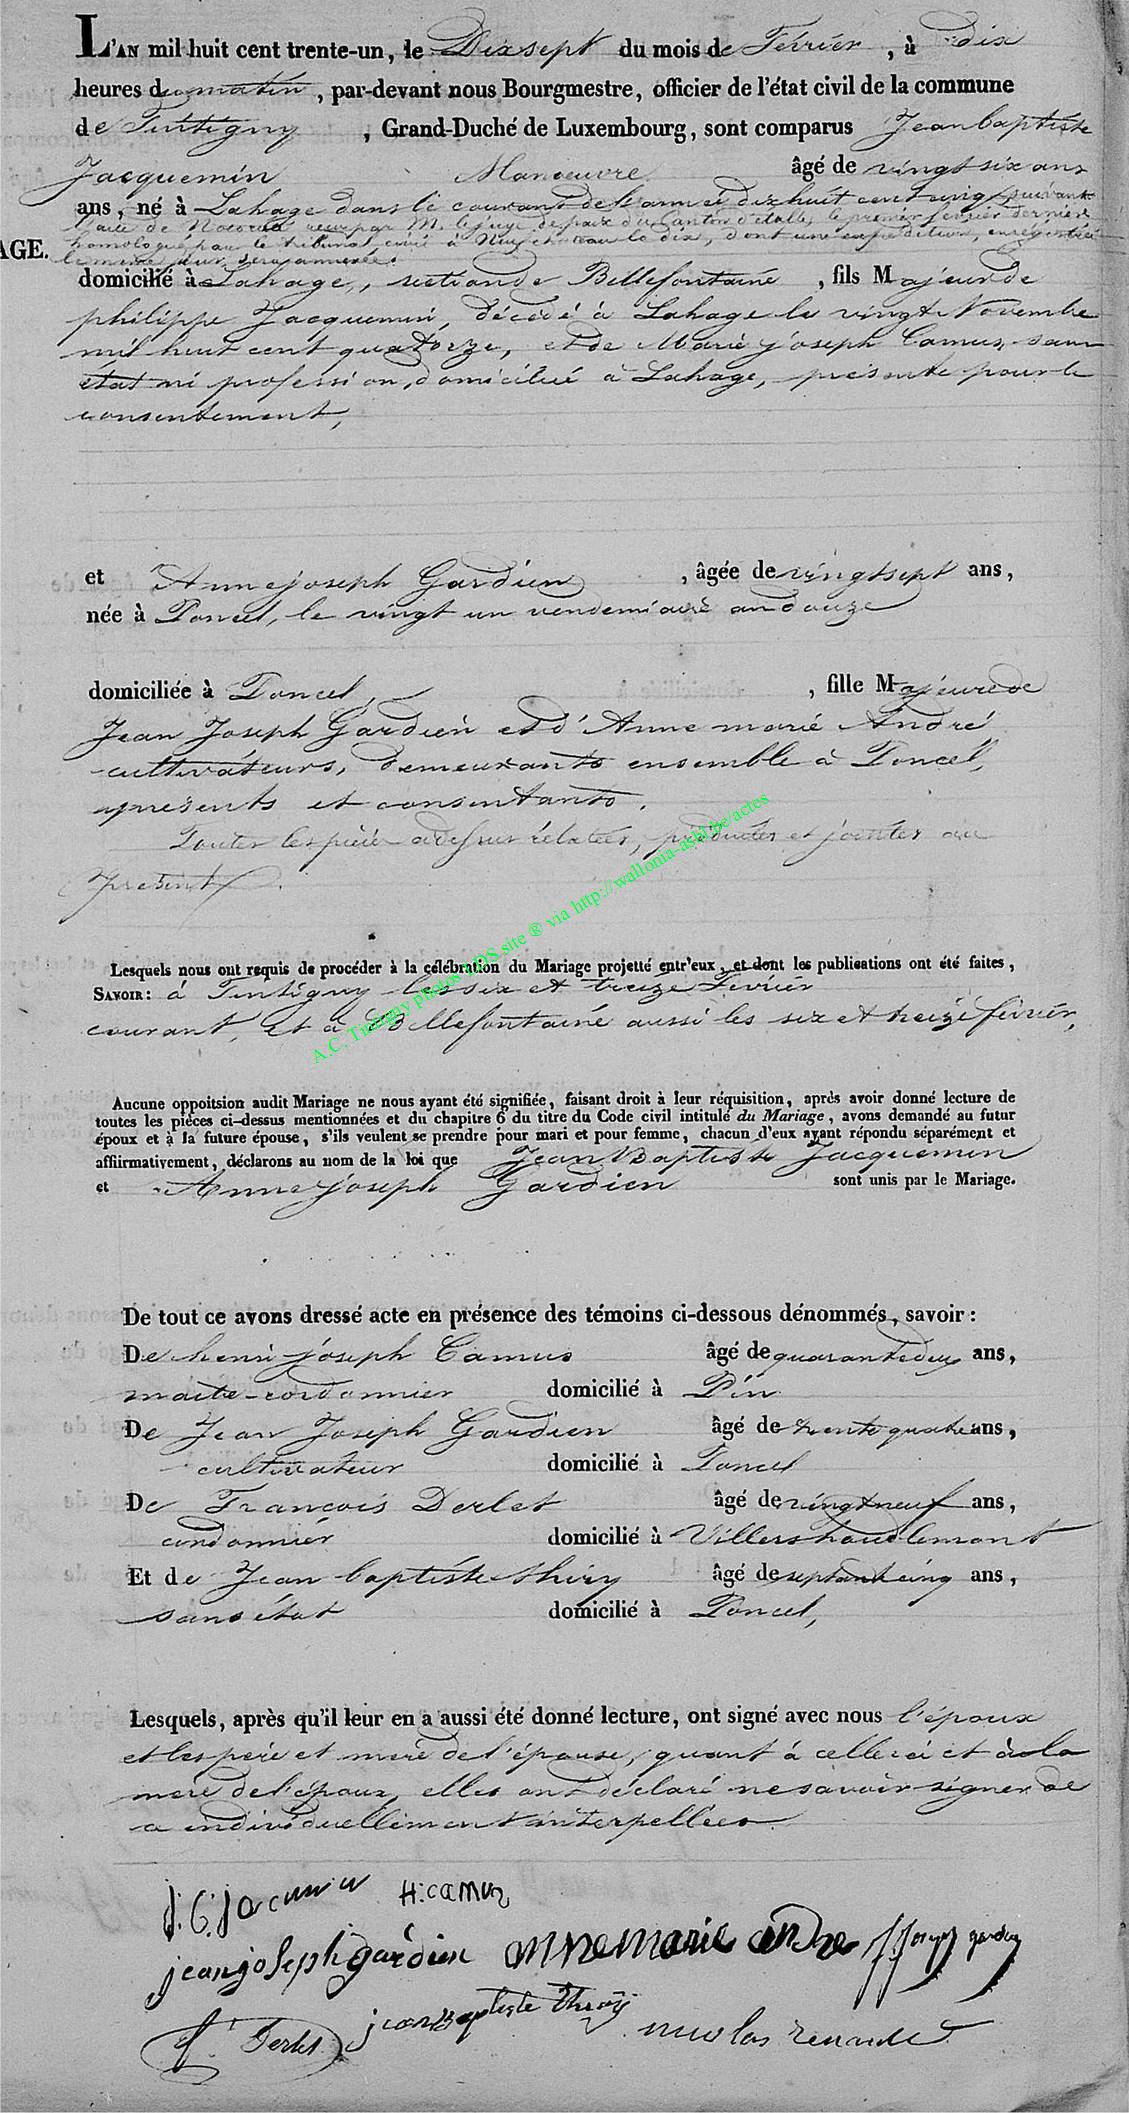 L'AN mil huit cent trente-un, le Dixsept du mois de Février, à dix
heures du matin, par-devant nous Bourgmestre, officier de l'état civil de la commune
de Tintigny, Grand-Duché de Luxembourg, sont comparus Jean baptiste
Jacquemin Manoeuvre âgé de vingt six ans
ans, né à Lahage dans le courant de l'année dixhuit cent cinq, suivant
l'acte de Notoriété recu par M. le juge de paix du Canton d'étalle, le premier février dernier
homologué par le tribunal civil à Neufchateau le dix, dont une expédition, enregistrée
AGE.
le même jour, sera annexée.
domicilié à Lahage, section de Bellefontaine, fils Majeur de
philippe Jacquemin, décédé à Lahage le vingt Novembre
mil huit cent quatorze, et de Marie joseph Camus, sans
état ni profession, domiciliée à Lahage, présente pour le
consentement,
et Anne joseph Gardien, âgée de vingt sept ans,
née à Poncel, le vingt un vendemiaire an douze
domiciliée à Poncel, , fille Majeure de
Jean Joseph Gardien et d'Anne marie André
cultivateurs, demeurants ensemble à Poncel,
présents et consentants.
Toutes les pièces cidessus rélatées, produites et jointes au
présent.
A.C. Tintigny photos LDS site ® via http://wallonia-asbl.be/actes
Lesquels nous ont requis de procéder à la célébration du Mariage projetté entr'eux, et dont les publications ont été faites,
SAVOIR: à Tintigny les six et treize Février
courant, et à Bellefontaine aussi les six et treize février,
Aucune oppoitsion audit Mariage ne nous ayant été signifiée, faisant droit à leur réquisition, après avoir donné lecture de
toutes les pièces ci-dessus mentionnées et du chapitre 6 du titre du Code civil intitulé du Mariage, avons demandé au futur
époux et à la future épouse, s'ils veulent se prendre pour mari et pour femme, chacun d'eux ayant répondu séparément et
affiirmativement, déclarons au nom de la loi que Jean Baptiste Jacquemin
et Anne joseph Gardien sont unis par le Mariage.
De tout ce avons dressé acte en présence des témoins ci-dessous dénommés, savoir:
De henri joseph Camus âgé de quarante deux ans,
maitre-cordonnier domicilié à Pin
De Jean Joseph Gardien âgé de trente quatre ans,
cultivateur domicilié à Poncel
De Francois Derlet âgé de vingt neuf ans,
cordonnier domicilié à Villers haudlemont
Et de Jean baptiste thiry âgé de septante cinq ans,
sans état domicilié à Poncel,
Lesquels, après qu'il leur en a aussi été donné lecture, ont signé avec nous l'époux
et les père et mere de l'épouse, quant à celle ci et à la
mere de l'époux, elles ont déclaré ne savoir signer de
ce individuellement interpellées
H: camus
jean joseph gardien anne marie andre
jean Baptiste thiry
nicolas renauld